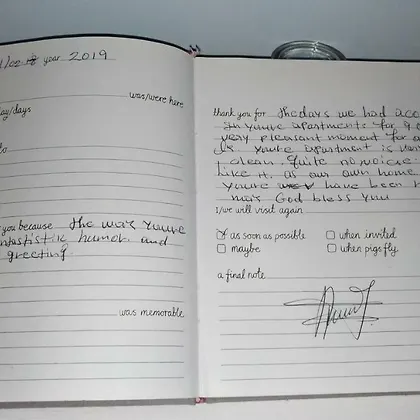 year 2019
was/were here
day/days
to
you because the way youve
fantastistic humor and
greeting.
was memorable
thank you for the days we had
In youre apartment: for
very pleasent moment for
youre apartment is
clean. Quite
like it. as our own home
youre have been
may God bless you
I/we will visit again
as soon as possible
when invited
maybe
when pigs fly
a final note